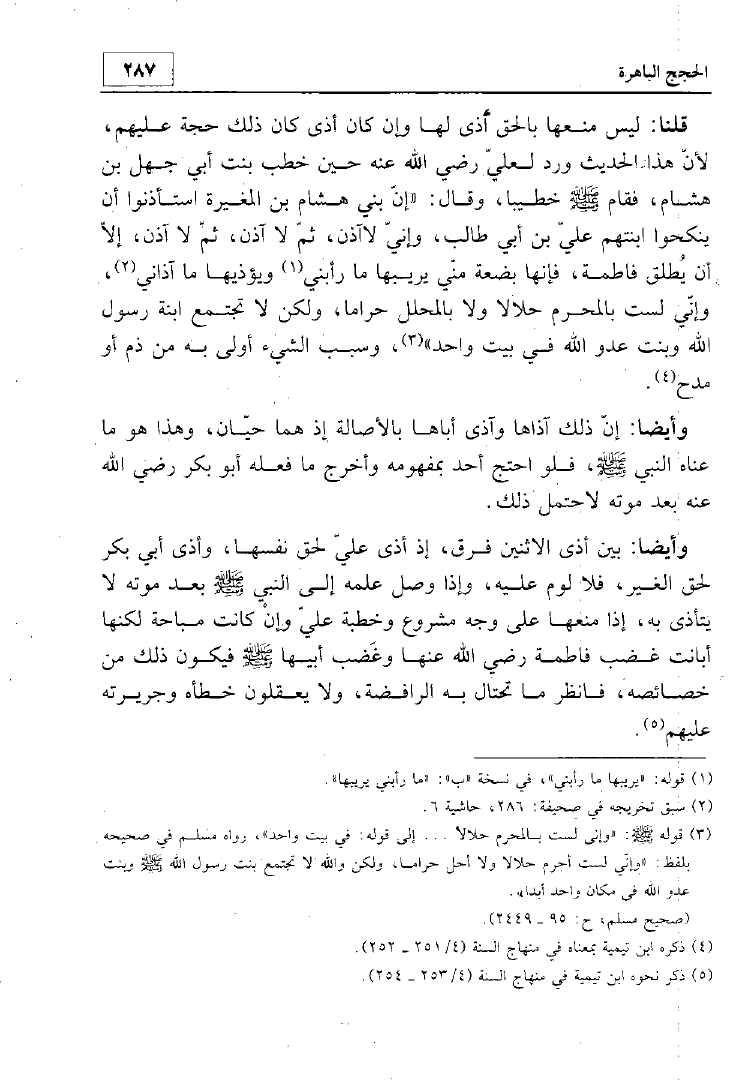 الحجج الباهرة
٢٨٧
قلنا: ليس منعها بالحق أذى لها وإن كان أذى كان ذلك حجة عليهم،
لأنّ هذا الحديث ورد لعليّ رضي الله عنه حين خطب بنت أبي جهل بن
هشام، فقام ﷺ خطيبا، وقال: «إنّ بني هشام بن المغيرة استأذنوا أن
ينكحوا ابنتهم عليّ بن أبي طالب، وإنيّ لاآذن، ثمّ لا آذن، ثمّ لا آذن، إلاّ
أن يُطلق فاطمة، فإنها بضعة منّي يريبها ما رأبني(١) ويؤذيها ما آذاني(٢)،
وإنّي لست بالمحرم حلالا ولا بالمحلل حراما، ولكن لا تجتمع ابنة رسول
الله وبنت عدو الله في بيت واحد»(٣)، وسبب الشيء أولى به من ذم أو
مدح(٤).
وأيضا: إنّ ذلك آذاها وآذى أباها بالأصالة إذ هما حيّان، وهذا هو ما
عناه النبي ﷺ، فلو احتج أحد بمفهومه وأخرج ما فعله أبو بكر رضي الله
عنه بعد موته لاحتمل ذلك.
وأيضا: بين أذى الاثنين فرق، إذ أذى عليّ لحق نفسها، وأذى أبي بكر
لحق الغير، فلا لوم عليه، وإذا وصل علمه إلى النبي ﷺ بعد موته لا
يتأذى به، إذا منعها على وجه مشروع وخطبة عليّ وإنْ كانت مباحة لكنها
أبانت غضب فاطمة رضي الله عنها وغَضب أبيها ﷺ فيكون ذلك من
خصائصه، فانظر ما تحتال به الرافضة، ولا يعقلون خطأه وجريرته
عليهم(٥).
(١) قوله: «يريبها ما رأبني»، في نسخة «ب»: «ما رأبني يريبها».
(٢) سبق تخريجه في صحيفة: ٢٨٦، حاشية ٦.
(٣) قوله ﷺ: «وإنى لست بالمحرم حلالاً ... إلى قوله: في بيت واحد»، رواه مسلم في صحيحه
بلفظ: «وإنّي لست أحرم حلالا ولا أحل حراما، ولكن والله لا تجتمع بنت رسول الله ﷺ وبنت
عدو الله في مكان واحد أبدا».
(صحيح مسلم، ح: ٩٥ ـ ٢٤٤٩).
(٤) ذكره ابن تيمية بمعناه في منهاج السنة (٤/ ٢٥١ ـ ٢٥٢).
(٥) ذكر نحوه ابن تيمية في منهاج السنة (٤/ ٢٥٣ ـ ٢٥٤).